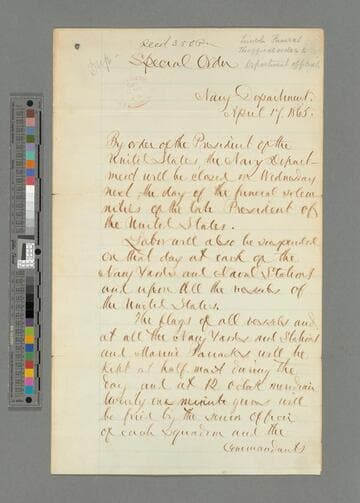 Special Order
Navy Department.
April 17 1865.
By order of the President of the
United States the Navy Depart-
ment will be closed on Wednesday
next, the day of the funeral solem
nities of the late President of
the United States.
Labor will also be suspended
on that day at each of the
Navy Yards and Naval Stations
and upon all the vessels of
the United States.
The flags of all vessels and
at all the Navy Yards and Stations
and Marine Barracks will be
kept at half mast during the
day and at 12 oclock meridian
twenty one minute guns will
be fired by the senior officer
of each squadron and the
Commandants